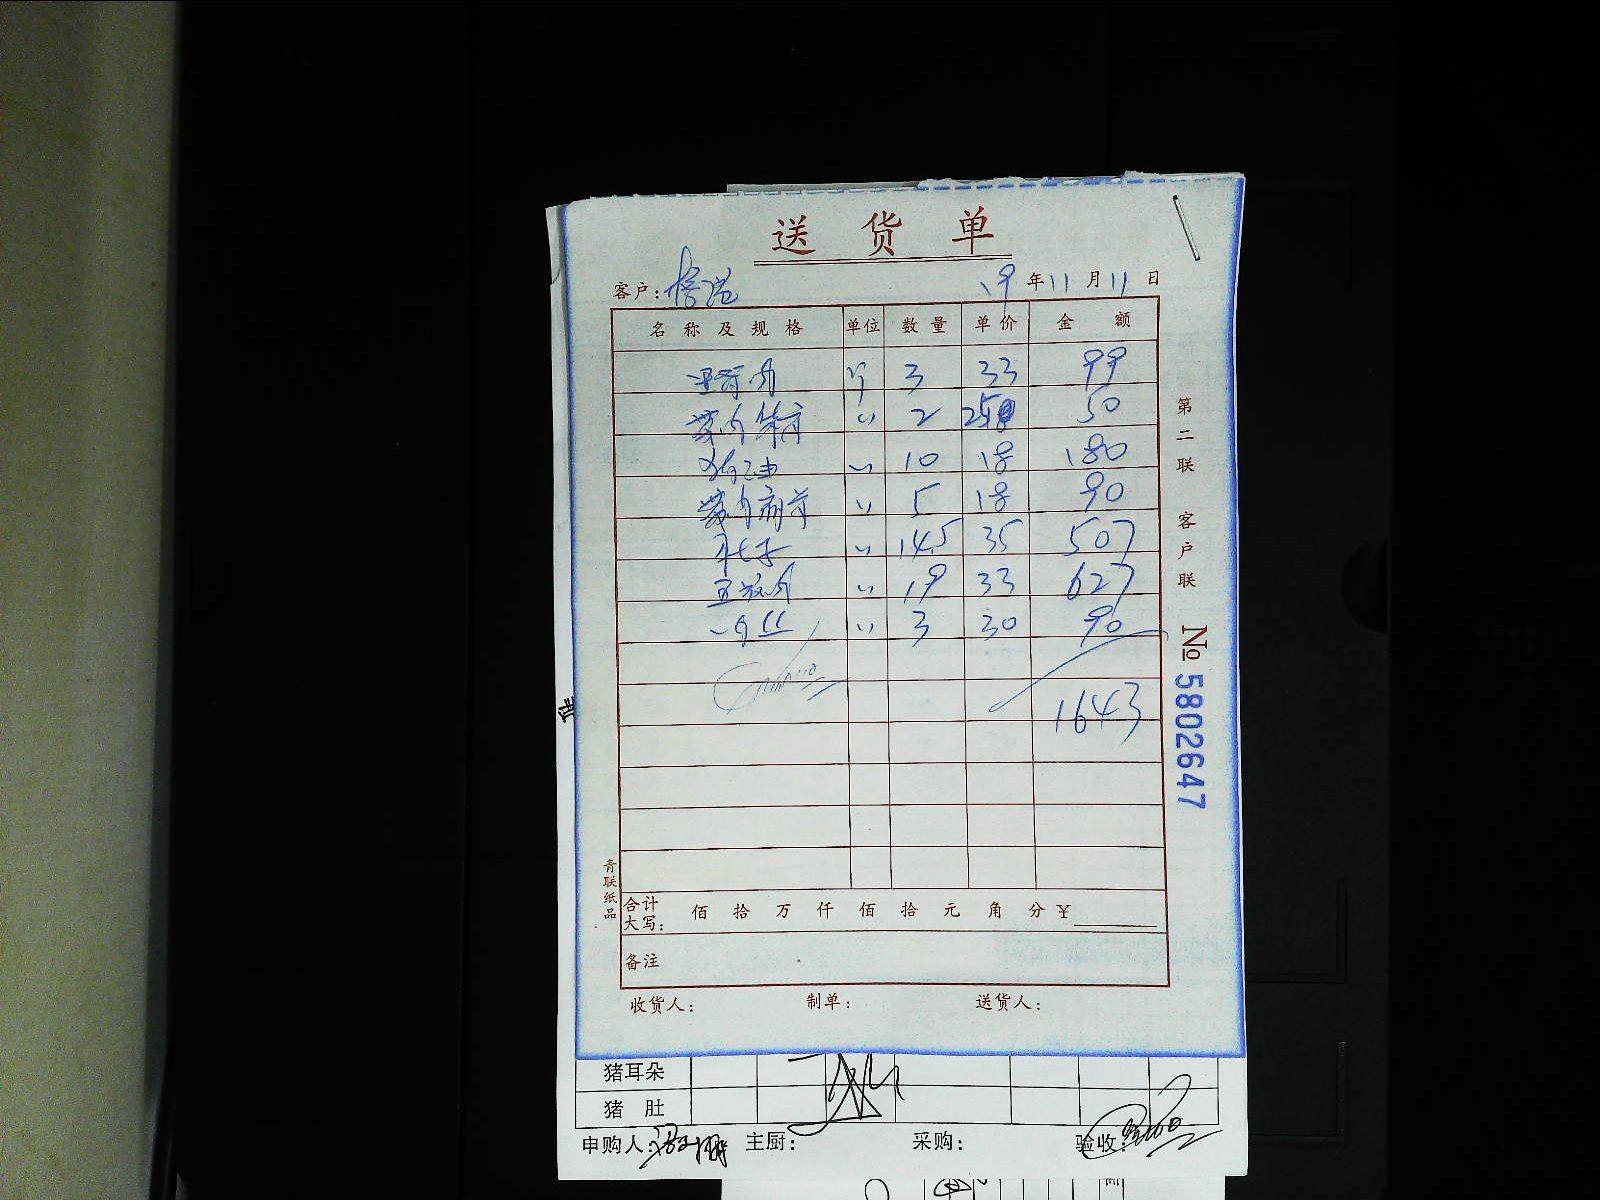 送货单
客户: 19年11月11日
名称及规格 单位 数量 单价 金额
斤 3 33 99
〃 2 25 50
猪油 〃 10 18 180
〃 5 18 90
肚子 〃 14.5 35 507
五花肉 〃 19 33 627
肉丝 〃 3 30 90
1643
合计大写: 佰 拾 万 仟 佰 拾 元 角 分 ¥
备注
收货人: 制单: 送货人:
第二联 客户联
№ 5802647
青联纸品
猪耳朵
猪肚
申购人: 主厨: 采购: 验收: